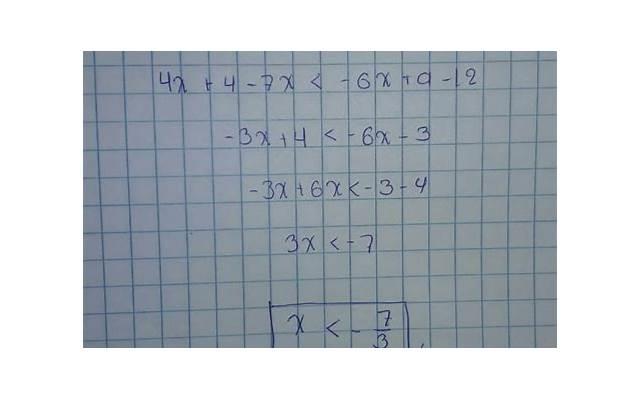 4x + 4 - 7x < -6x + 9 - 12
-3x + 4 < -6x - 3
-3x + 6x < -3 - 4
3x < -7
x < - 7/3